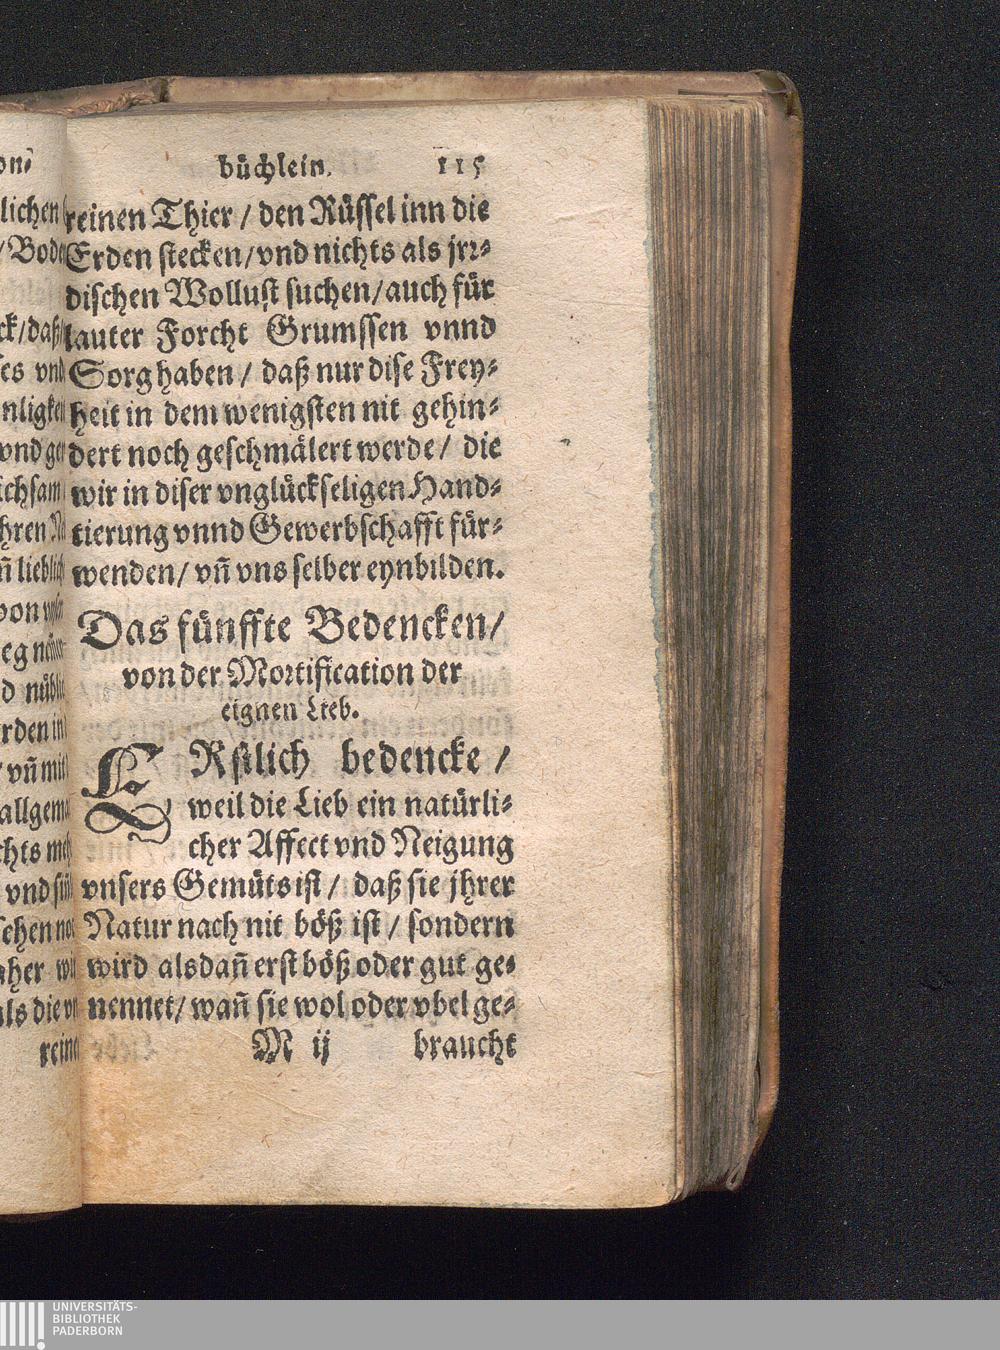 büchlein. 115
reinen Thier / den Rüssel inn die
Erden stecken / vnd nichts als jrr-
dischen Wollust suchen / auch für
lauter Forcht Grumssen vnnd
Sorg haben / daß nur dise Frey-
heit in dem wenigsten nit gehin-
dert noch geschmälert werde / die
wir in diser vnglückseligen Hand-
tierung vnnd Gewerbschafft für-
wenden / vñ vns selber eynbilden.
Das fünffte Bedencken /
von der Mortification der
eignen Lieb.
ERstlich bedencke /
weil die Lieb ein natürli-
cher Affect vnd Neigung
vnsers Gemüts ist / daß sie jhrer
Natur nach nit böß ist / sondern
wird alsdañ erst böß oder gut ge-
nennet / wañ sie wol oder vbel ge-
M ij braucht
UNIVERSITÄTS-
BIBLIOTHEK
PADERBORN